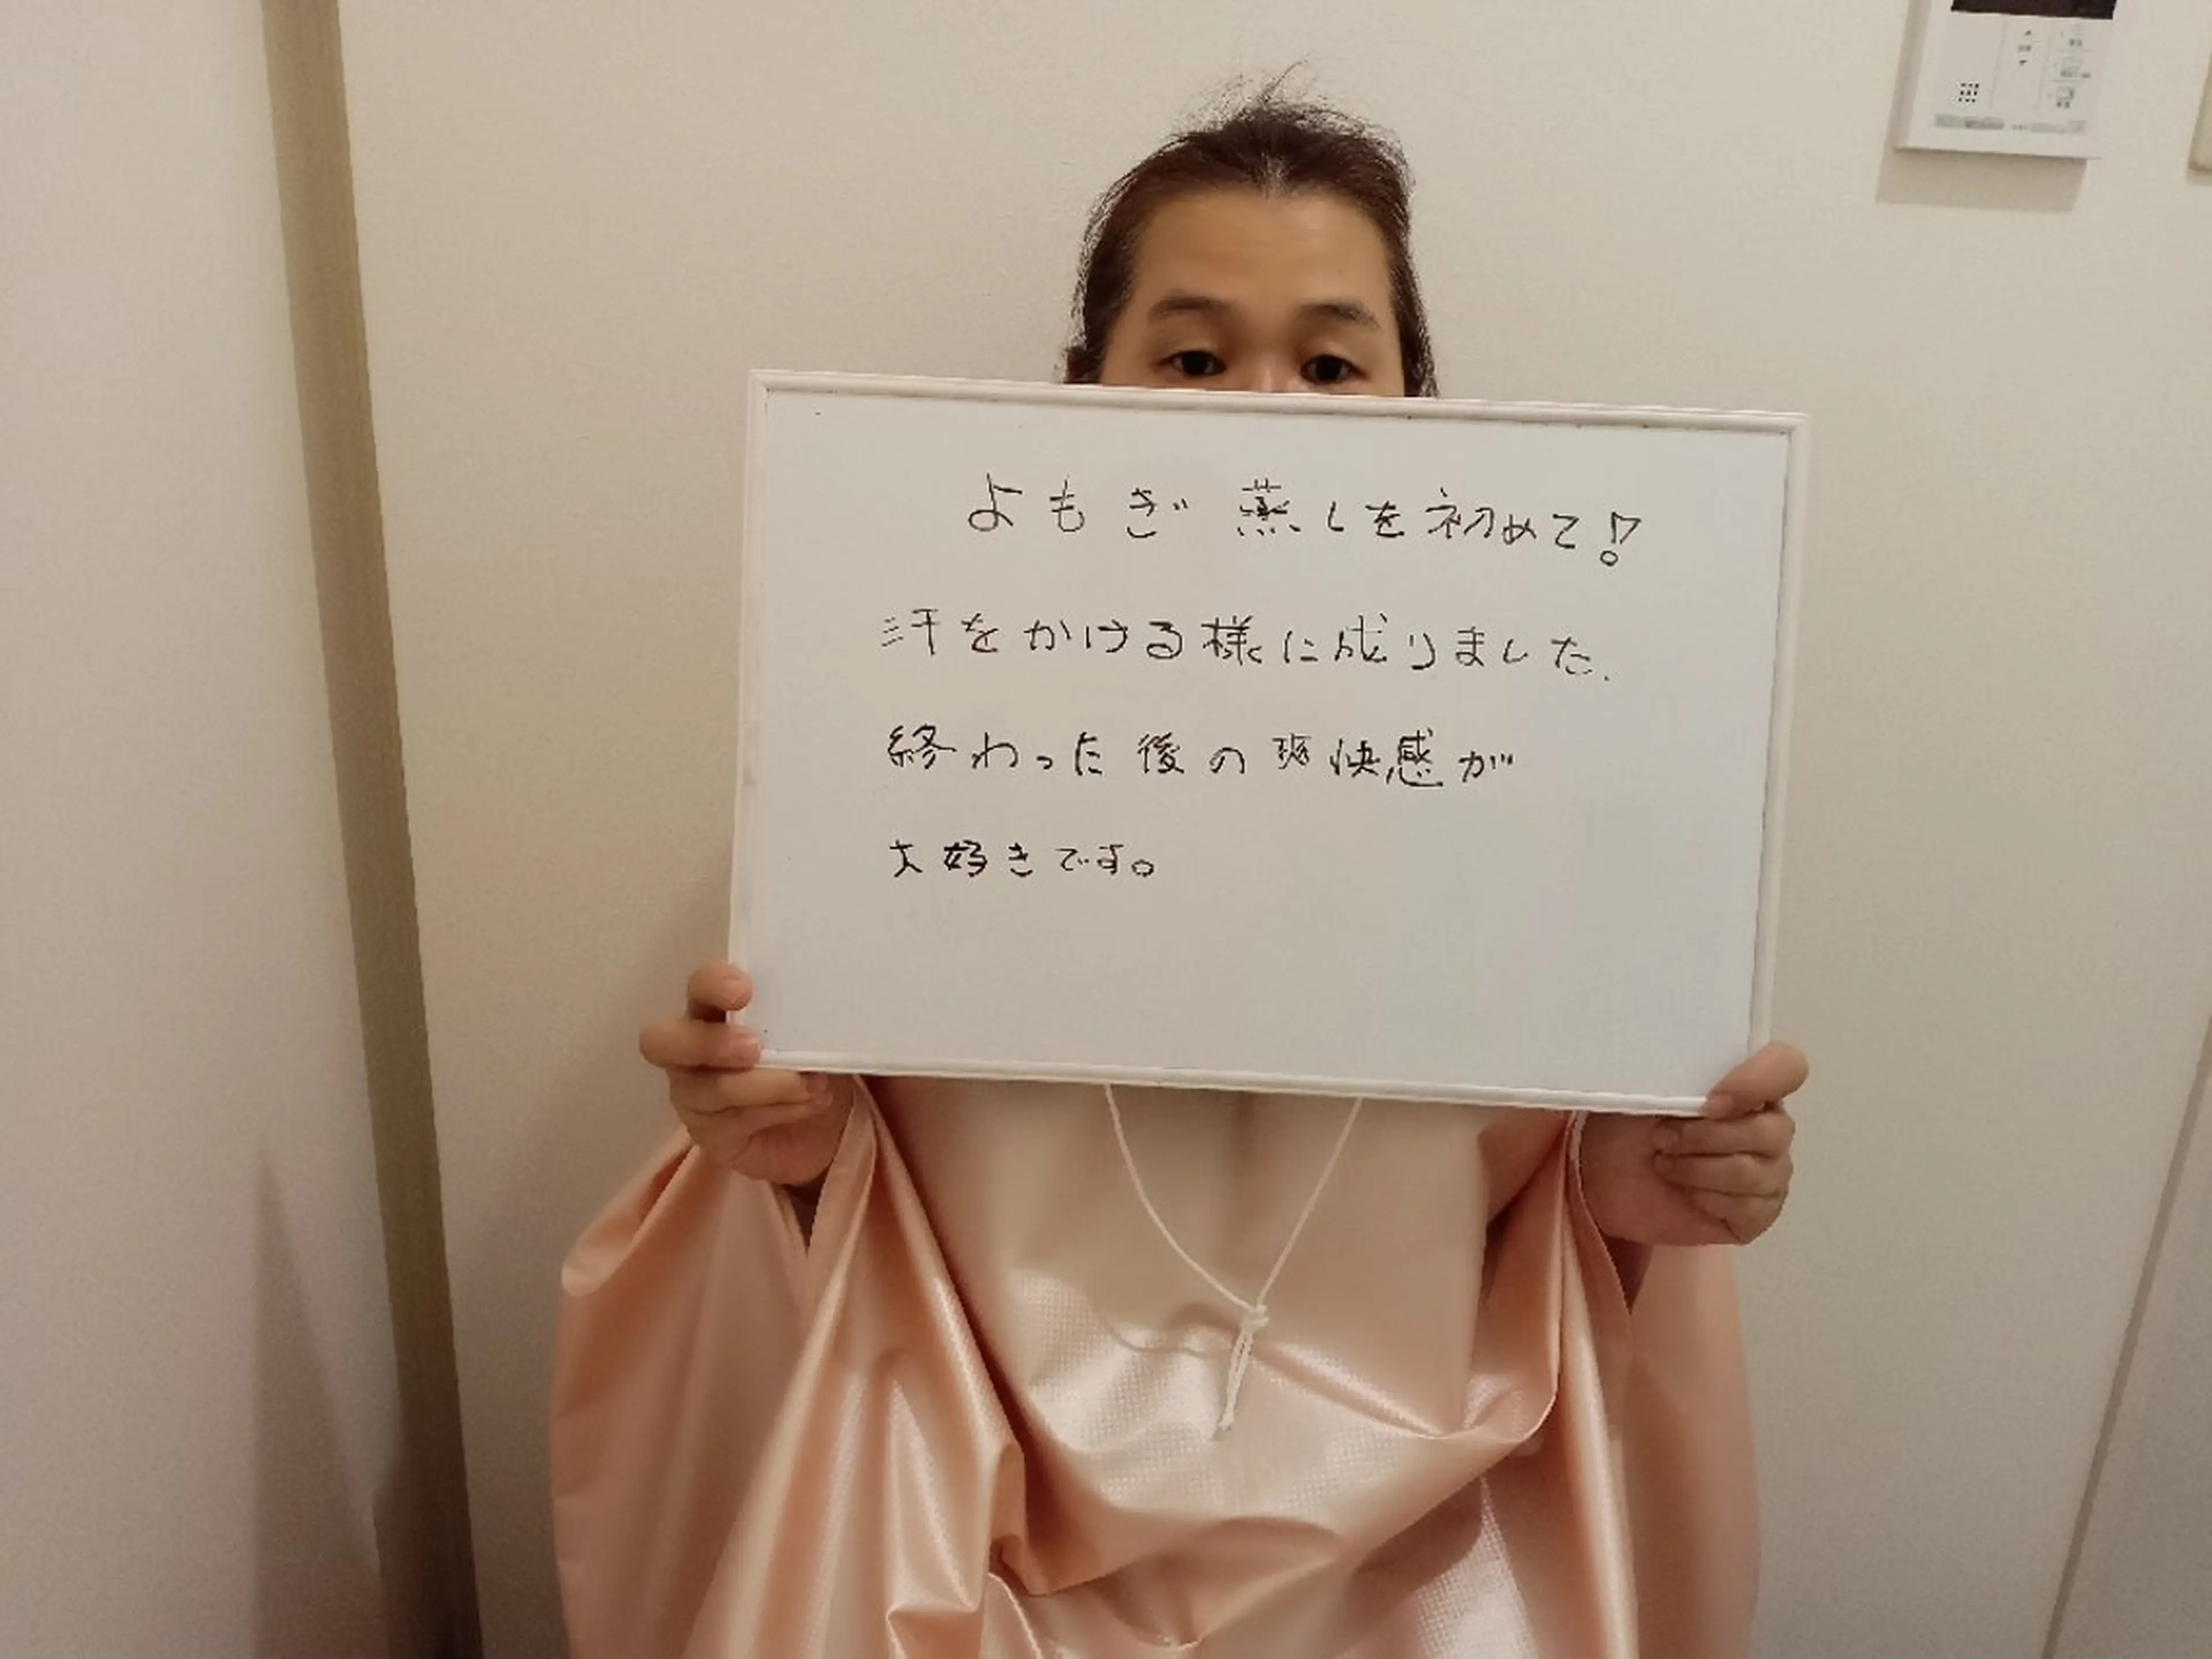 よもぎ蒸しを初めて!
汗をかける様に成りました.
終わった後の爽快感が
大好きです。